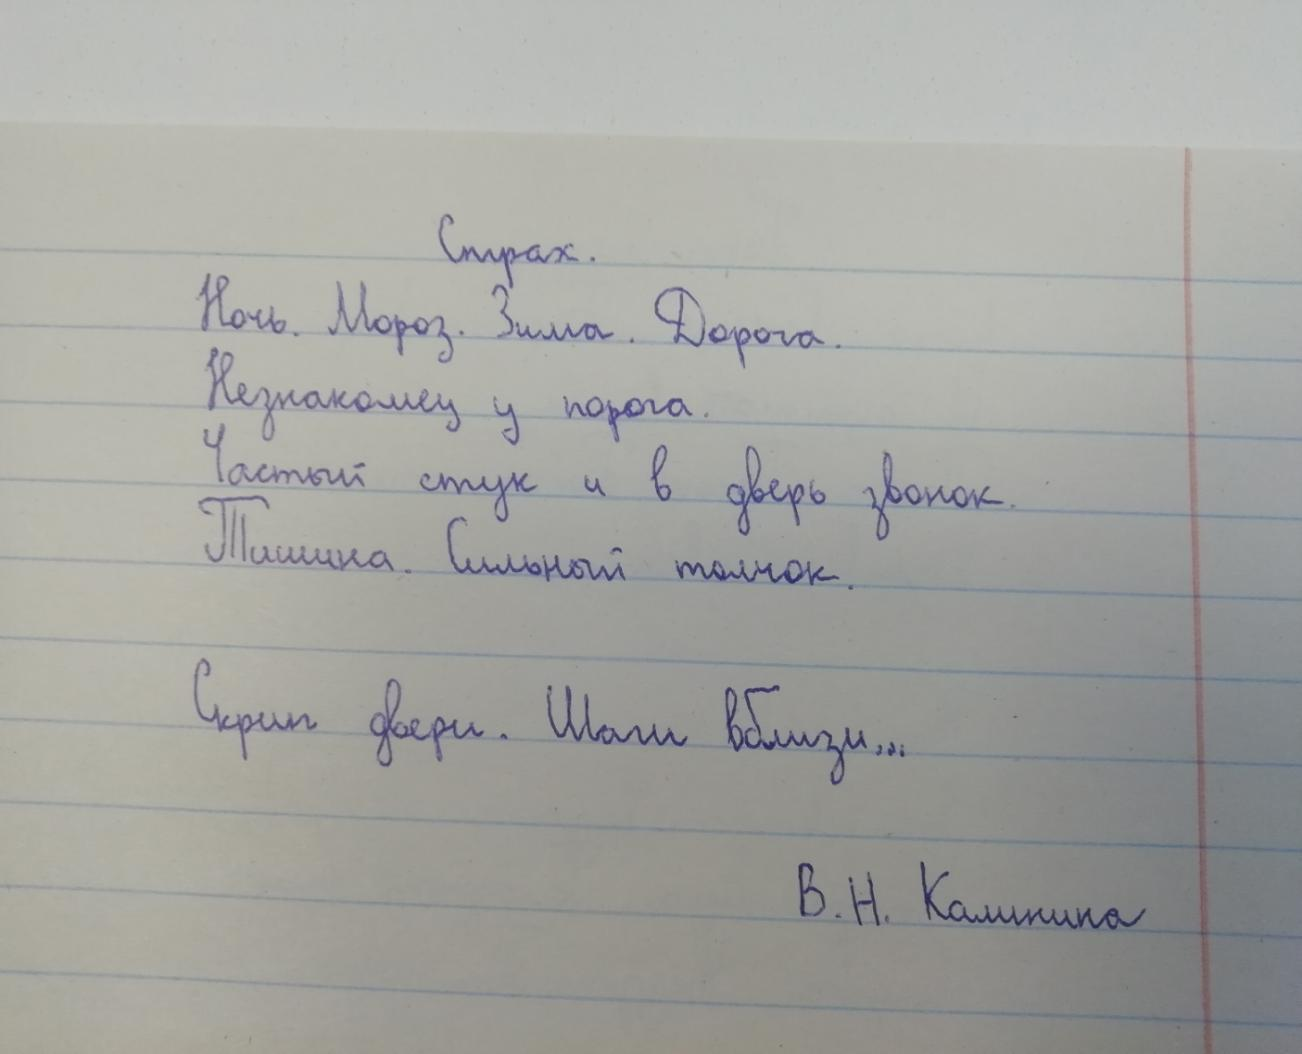 Страх.
Ночь. Мороз. Зима. Дорога.
Незнакомец у порога.
Частый стук и в дверь звонок.
Тишина. Сильный толчок.
Скрип двери. Шаги вблизи...
В.Н. Калинина